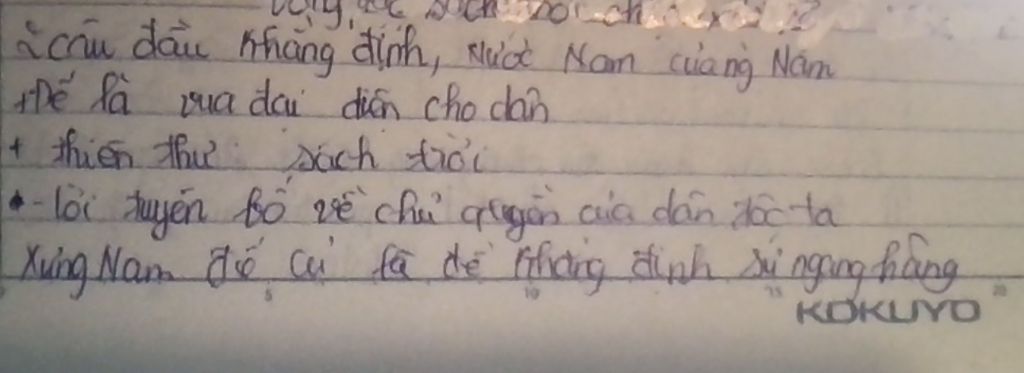 2 câu đầu khẳng định, Nước Nam của ng Nam
+ Đế là vua đại diện cho dân
+ thiên thư: sách trời
- lời tuyên bố về chủ quyền của dân tộc ta
Xưng Nam đế cư là để khẳng định sự ngang hàng
KOKUYO